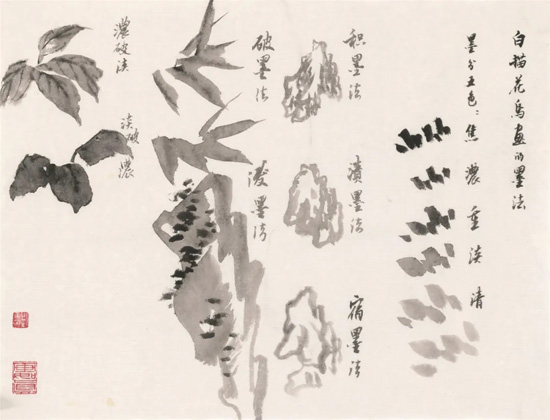 白描花鸟画的墨法
墨分五色：焦 濃 重 淡 清
积墨法
漬墨法
宿墨法
破墨法
潑墨法
濃破淡
淡破濃